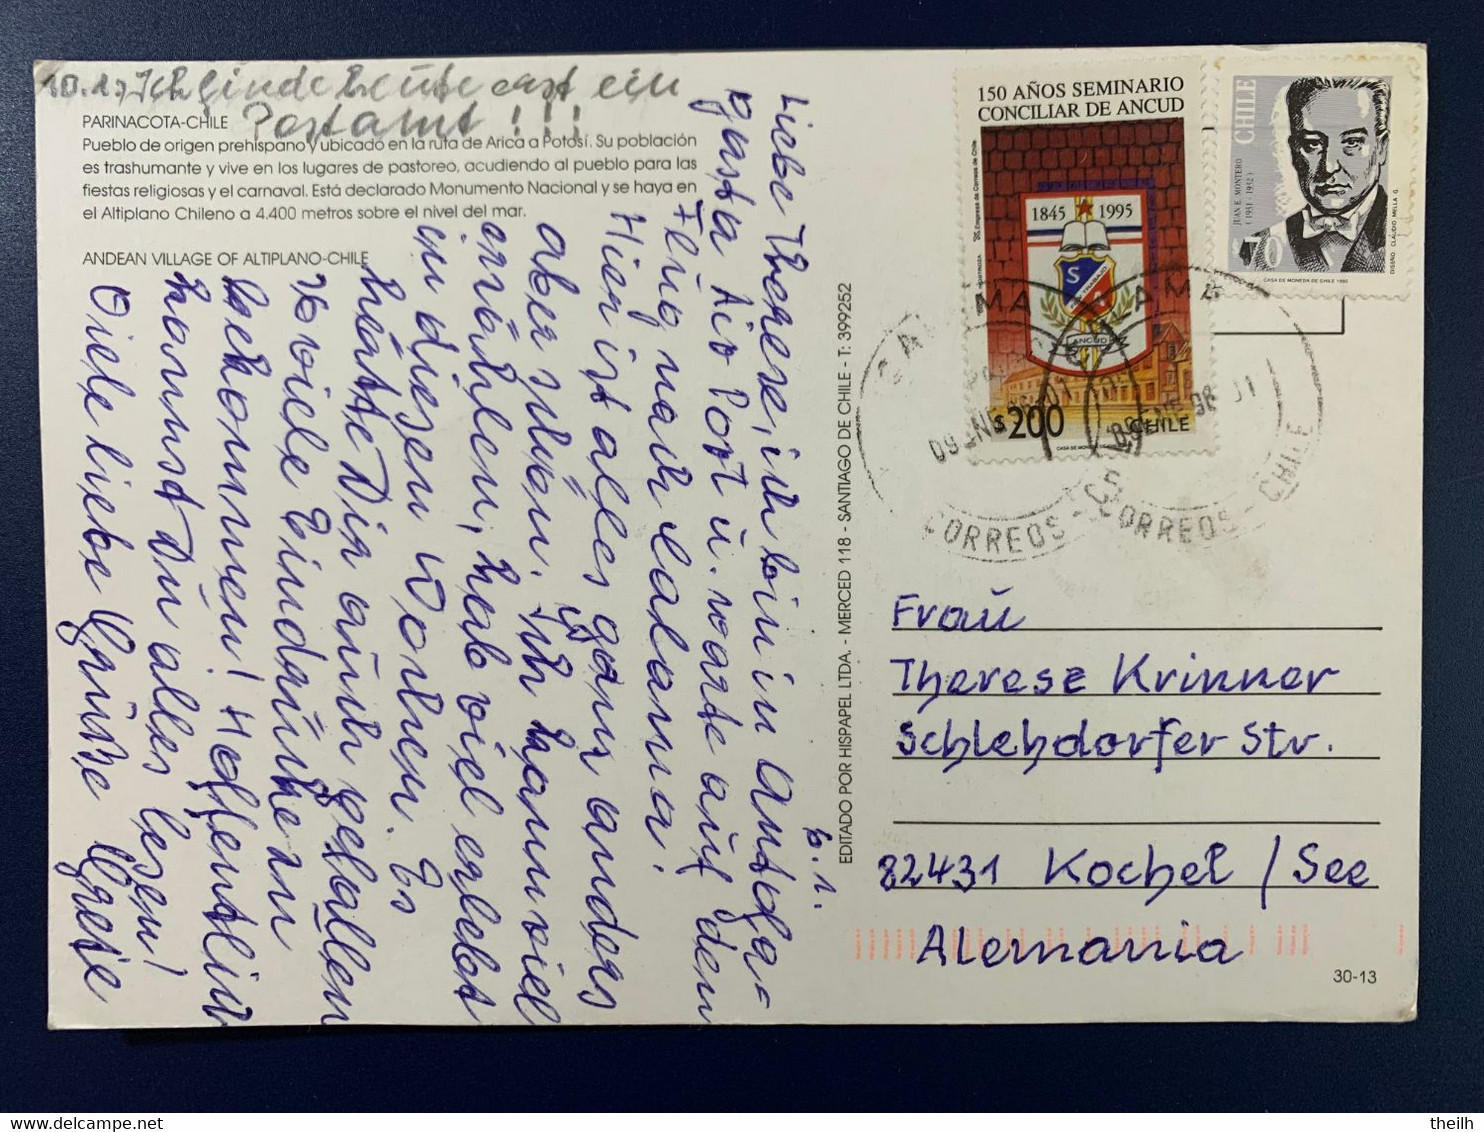 10.1. Ich finde heute erst ein
Postamt!!!
PARINACOTA-CHILE
Pueblo de origen prehispano y ubicado en la ruta de Arica a Potosí. Su población
es trashumante y vive en los lugares de pastoreo, acudiendo al pueblo para las
fiestas religiosas y el carnaval. Está declarado Monumento Nacional y se haya en
el Altiplano Chileno a 4.400 metros sobre el nivel del mar.
ANDEAN VILLAGE OF ALTIPLANO-CHILE
6.1.
Liebe Therese, ich bin in Antofa-
gasta Air Port u. warte auf den
Flug nach Calama.
Hier ist alles ganz anders
aber schön. Ich kann viel
erzählen, hab viel erlebt
in diesen Wochen. Es
hätte Dir auch gefallen
so viele Eindrücke zu
bekommen! Hoffentlich
kannst Du alles lesen!
Viele liebe Grüsse
EDITADO POR HISPAPEL LTDA. - MERCED 118 - SANTIAGO DE CHILE - T: 399252
150 AÑOS SEMINARIO
CONCILIAR DE ANCUD
Empresa de Correos de Chile
1845 1995
S
TRABAJO
ANCUD
$200
CHILE
CASA DE MONEDA DE CHILE
CHILE
JUAN E. MONTERO
( 1931 - 1932 )
70
DISEÑO CLAUDIO MELLA G.
CASA DE MONEDA DE CHILE
CORREOS - CHILE
09 ENE 98
CORREOS - CHILE
Frau
Therese Krinner
Schlehdorfer Str.
82431 Kochel / See
Alemania
30-13
theilh